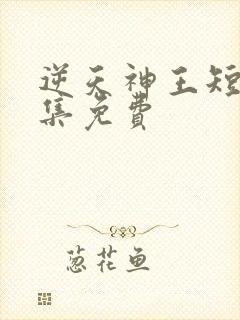 逆天神王短
集免费
葱花鱼